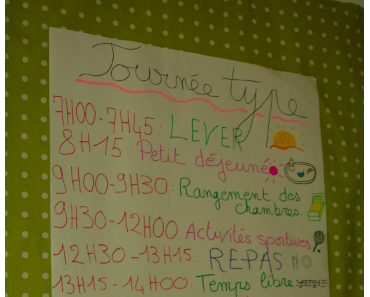 Journée type
7H00-7H45: LEVER
8H15: Petit déjeuné
9H00-9H30: Rangement des
chambres
9H30-12H00 Activités sportives
12H30-13H15: REPAS
13H15-14H00: Temps libre